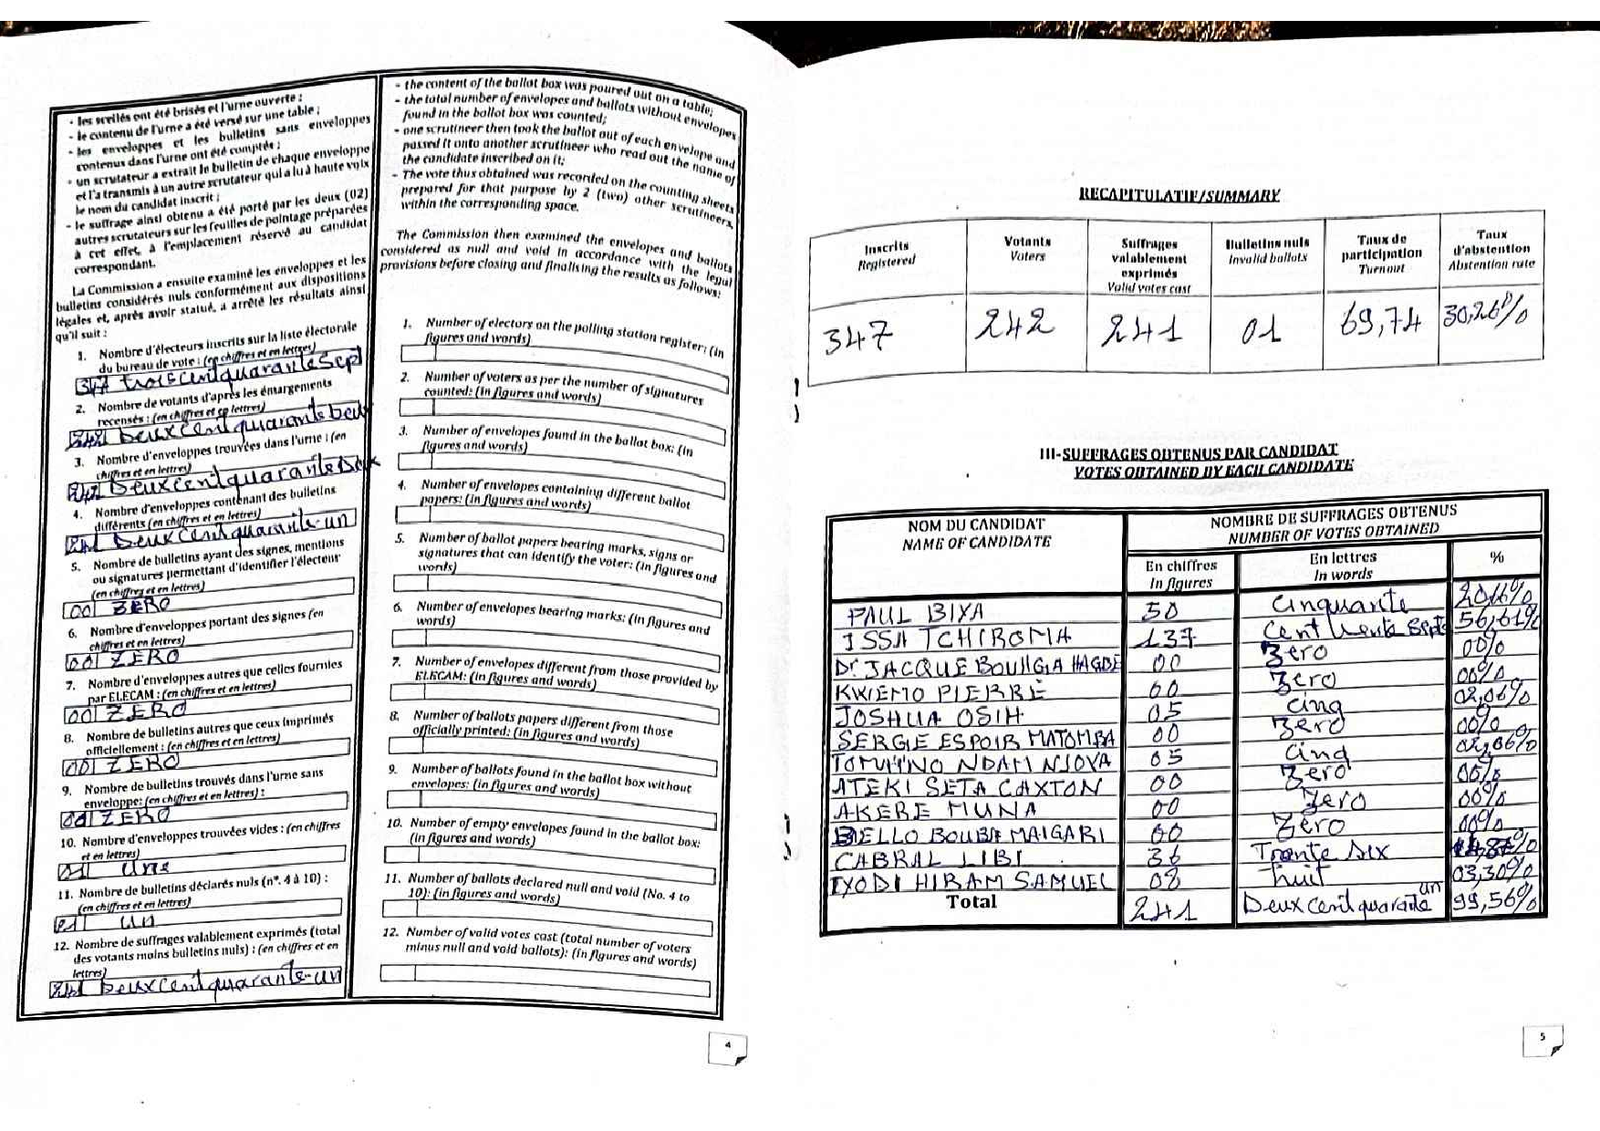 - les scellés ont été brisés et l'urne ouverte ;
- le contenu de l'urne a été versé sur une table ;
- les enveloppes et les bulletins sans enveloppes
contenus dans l'urne ont été comptés ;
- un scrutateur a extrait le bulletin de chaque enveloppe
et l'a transmis à un autre scrutateur qui a lu à haute voix
le nom du candidat inscrit ;
- le suffrage ainsi obtenu a été porté par les deux (02)
autres scrutateurs sur les feuilles de pointage préparées
à cet effet, à l'emplacement réservé au candidat
correspondant.
La Commission a ensuite examiné les enveloppes et les
bulletins considérés nuls conformément aux dispositions
légales et, après avoir statué, a arrêté les résultats ainsi
qu'il suit :
1. Nombre d'électeurs inscrits sur la liste électorale
du bureau de vote : (en chiffres et en lettres)
347 trois cent quarante Sept
2. Nombre de votants d'après les émargements
recensés : (en chiffres et en lettres)
242 Deux cent quarante Deux
3. Nombre d'enveloppes trouvées dans l'urne : (en
chiffres et en lettres)
242 Deux cent quarante Deux
4. Nombre d'enveloppes contenant des bulletins
différents (en chiffres et en lettres)
241 Deux cent quarante-un
5. Nombre de bulletins ayant des signes, mentions
ou signatures permettant d'identifier l'électeur
(en chiffres et en lettres)
00 ZERO
6. Nombre d'enveloppes portant des signes (en
chiffres et en lettres)
00 ZERO
7. Nombre d'enveloppes autres que celles fournies
par ELECAM : (en chiffres et en lettres)
00 ZERO
8. Nombre de bulletins autres que ceux imprimés
officiellement : (en chiffres et en lettres)
00 ZERO
9. Nombre de bulletins trouvés dans l'urne sans
enveloppe: (en chiffres et en lettres) :
00 ZERO
10. Nombre d'enveloppes trouvées vides : (en chiffres
et en lettres)
01 une
11. Nombre de bulletins déclarés nuls (n°. 4 à 10) :
(en chiffres et en lettres)
01 un
12. Nombre de suffrages valablement exprimés (total
des votants moins bulletins nuls) : (en chiffres et en
lettres)
241 Deux cent quarante-un
- the content of the ballot box was poured out on a table;
- the total number of envelopes and ballots without envelopes
found in the ballot box was counted;
- one scrutineer then took the ballot out of each envelope and
passed it onto another scrutineer who read out the name of
the candidate inscribed on it;
- The vote thus obtained was recorded on the counting sheets
prepared for that purpose by 2 (two) other scrutineers,
within the corresponding space.
The Commission then examined the envelopes and ballots
considered as null and void in accordance with the legal
provisions before closing and finalising the results as follows:
1. Number of electors on the polling station register: (in
figures and words)
2. Number of voters as per the number of signatures
counted: (in figures and words)
3. Number of envelopes found in the ballot box: (in
figures and words)
4. Number of envelopes containing different ballot
papers: (in figures and words)
5. Number of ballot papers bearing marks, signs or
signatures that can identify the voter: (in figures and
words)
6. Number of envelopes bearing marks: (in figures and
words)
7. Number of envelopes different from those provided by
ELECAM: (in figures and words)
8. Number of ballots papers different from those
officially printed: (in figures and words)
9. Number of ballots found in the ballot box without
envelopes: (in figures and words)
10. Number of empty envelopes found in the ballot box:
(in figures and words)
11. Number of ballots declared null and void (No. 4 to
10): (in figures and words)
12. Number of valid votes cast (total number of voters
minus null and void ballots): (in figures and words)
4
RECAPITULATIF/SUMMARY
Inscrits
Registered
Votants
Voters
Suffrages
valablement
exprimés
Valid votes cast
Bulletins nuls
Invalid ballots
Taux de
participation
Turnout
Taux
d'abstention
Abstention rate
347 242 241 01 69,74 30,26%
III-SUFFRAGES OBTENUS PAR CANDIDAT
VOTES OBTAINED BY EACH CANDIDATE
NOM DU CANDIDAT
NAME OF CANDIDATE
NOMBRE DE SUFFRAGES OBTENUS
NUMBER OF VOTES OBTAINED
En chiffres
In figures
En lettres
In words
%
PAUL BIYA 50 Cinquante
ISSA TCHIROMA 137 Cent trente Sept 56,61%
Dr. JACQUE BOUHGIA HAGBE 00 Zero 00%
KWEMO PIERRE 00 Zero 00%
JOSHUA OSIH 05 Cinq 02,06%
SERGE ESPOIR MATOMBA 00 Zero 00%
TOMAINO NDAM NJOYA 05 Cinq 02,06%
ATEKI SETA CAXTON 00 Zero 00%
AKERE MUNA 00 Zero 00%
BELLO BOUBA MAIGARI 00 Zero 00%
CABRAL LIBI 36 Trente Six
IYODI HIRAM SAMUEL 08 huit 03,30%
Total 241 Deux cent quarante un 99,56%
5